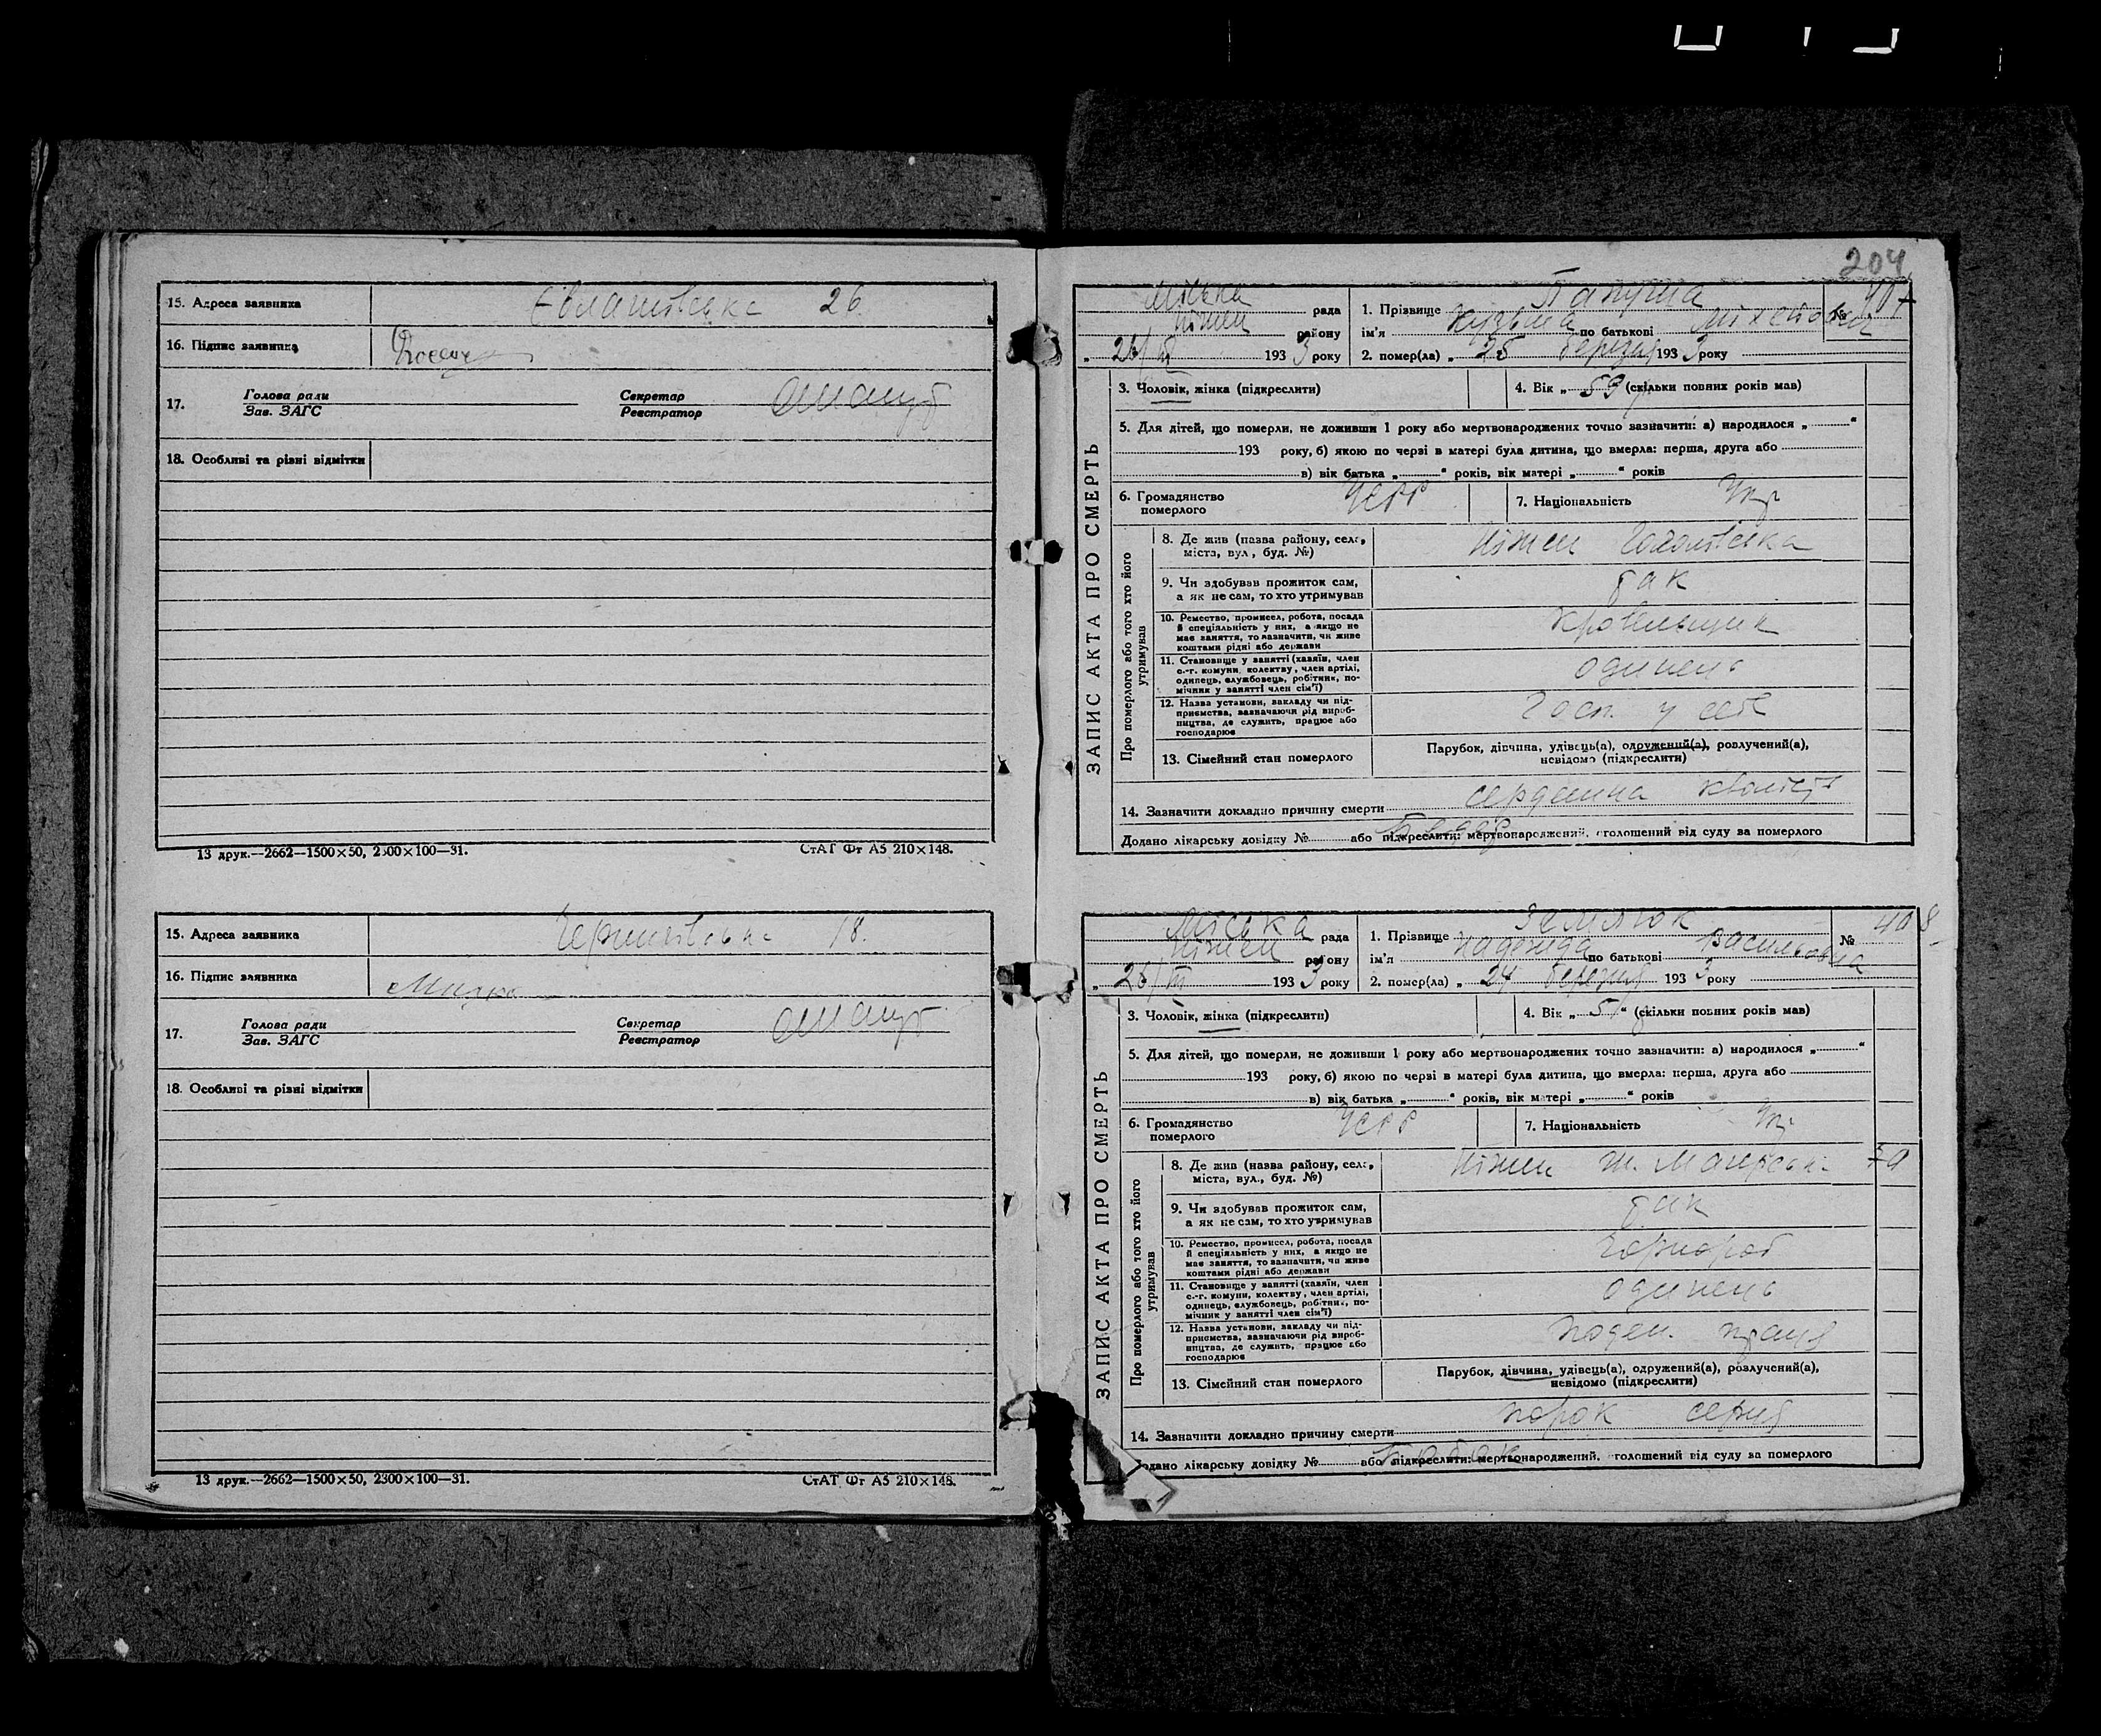 15. Адреса заявника 26
16. Підпис заявника
17. Голова ради
Зав. ЗАГС
Секретар
Реєстратор
18. Особливі та різні відмітки
13 друк.—2662—1500×50, 2300×100—31. СтАТ Фт А5 210×148.
15. Адреса заявника 18.
16. Підпис заявника
17. Голова ради
Зав. ЗАГС
Секретар
Реєстратор
18. Особливі та різні відмітки
13 друк.—2662—1500×50, 2300×100—31. СтАТ Фт А5 210×148.
204
ЗАПИС АКТА ПРО СМЕРТЬ
Міська рада
Ніжен району
„ 26/III 1933 року
1. Прізвище Папуша № 407
ім'я Кузьма по батькові Міхейович
2. помер(ла) „ 25 березня 1933 року
3. Чоловік, жінка (підкреслити)
4. Вік „ 59 (скільки повних років мав)
5. Для дітей, що померли, не доживши 1 року або мертвонароджених точно зазначити: а) народилося „ “
193 року, б) якою по черзі в матері була дитина, що вмерла: перша, друга або
в) вік батька „ “ років, вік матері „ “ років
6. Громадянство померлого УСРР
7. Національність Укр
Про померлого або того хто його утримував
8. Де жив (назва району, села, міста, вул., буд. №) Ніжен
9. Чи здобував прожиток сам, а як не сам, то хто утримував так
10. Ремество, промисел, робота, посада й спеціяльність у них, а якщо не має заняття, то зазначити, чи живе коштами рідні або держави кровельщик
11. Становище у занятті (хазяїн, член с.-г. комуни, колективу, член артілі, одинець, службовець, робітник, помічник у занятті член сім'ї) одинець
12. Назва установи, закладу чи підприємства, зазначаючи рід виробництва, де служить, працює або господарює Госп. у себе
13. Сімейний стан померлого Парубок, дівчина, удівець(а), одружений(а), розлучений(а), невідомо (підкреслити)
14. Зазначити докладно причину смерти сердешна
Додано лікарську довідку № або підкреслити: мертвонароджений, оголошений від суду за померлого
ЗАПИС АКТА ПРО СМЕРТЬ
Міська рада
Ніжен району
„ 26/III 1933 року
1. Прізвище Земляок № 408
ім'я Надежда по батькові Васильовна
2. помер(ла) „ 24 березня 1933 року
3. Чоловік, жінка (підкреслити)
4. Вік „ 51 “ (скільки повних років мав)
5. Для дітей, що померли, не доживши 1 року або мертвонароджених точно зазначити: а) народилося „ “
193 року, б) якою по черзі в матері була дитина, що вмерла: перша, друга або
в) вік батька „ “ років, вік матері „ “ років
6. Громадянство померлого УСРР
7. Національність Укр
Про померлого або того хто його утримував
8. Де жив (назва району, села, міста, вул., буд. №) Ніжен
9. Чи здобував прожиток сам, а як не сам, то хто утримував так
10. Ремество, промисел, робота, посада й спеціяльність у них, а якщо не має заняття, то зазначити, чи живе коштами рідні або держави чорнороб
11. Становище у занятті (хазяїн, член с.-г. комуни, колективу, член артілі, одинець, службовець, робітник, помічник у занятті член сім'ї) одинець
12. Назва установи, закладу чи підприємства, зазначаючи рід виробництва, де служить, працює або господарює поден. праця
13. Сімейний стан померлого Парубок, дівчина, удівець(а), одружений(а), розлучений(а), невідомо (підкреслити)
14. Зазначити докладно причину смерти порок серця
Додано лікарську довідку № або підкреслити: мертвонароджений, оголошений від суду за померлого